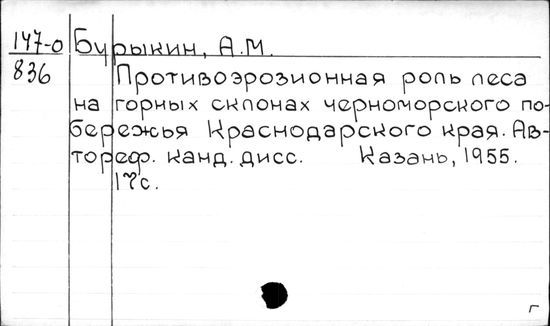 147-о Бурыкин, А.М.
836 Противоэрозионная роль леса
на горных склонах черноморского по-
бережья Краснодарского края. Ав-
тореф. канд. дисс. Казань, 1955.
17с.
г